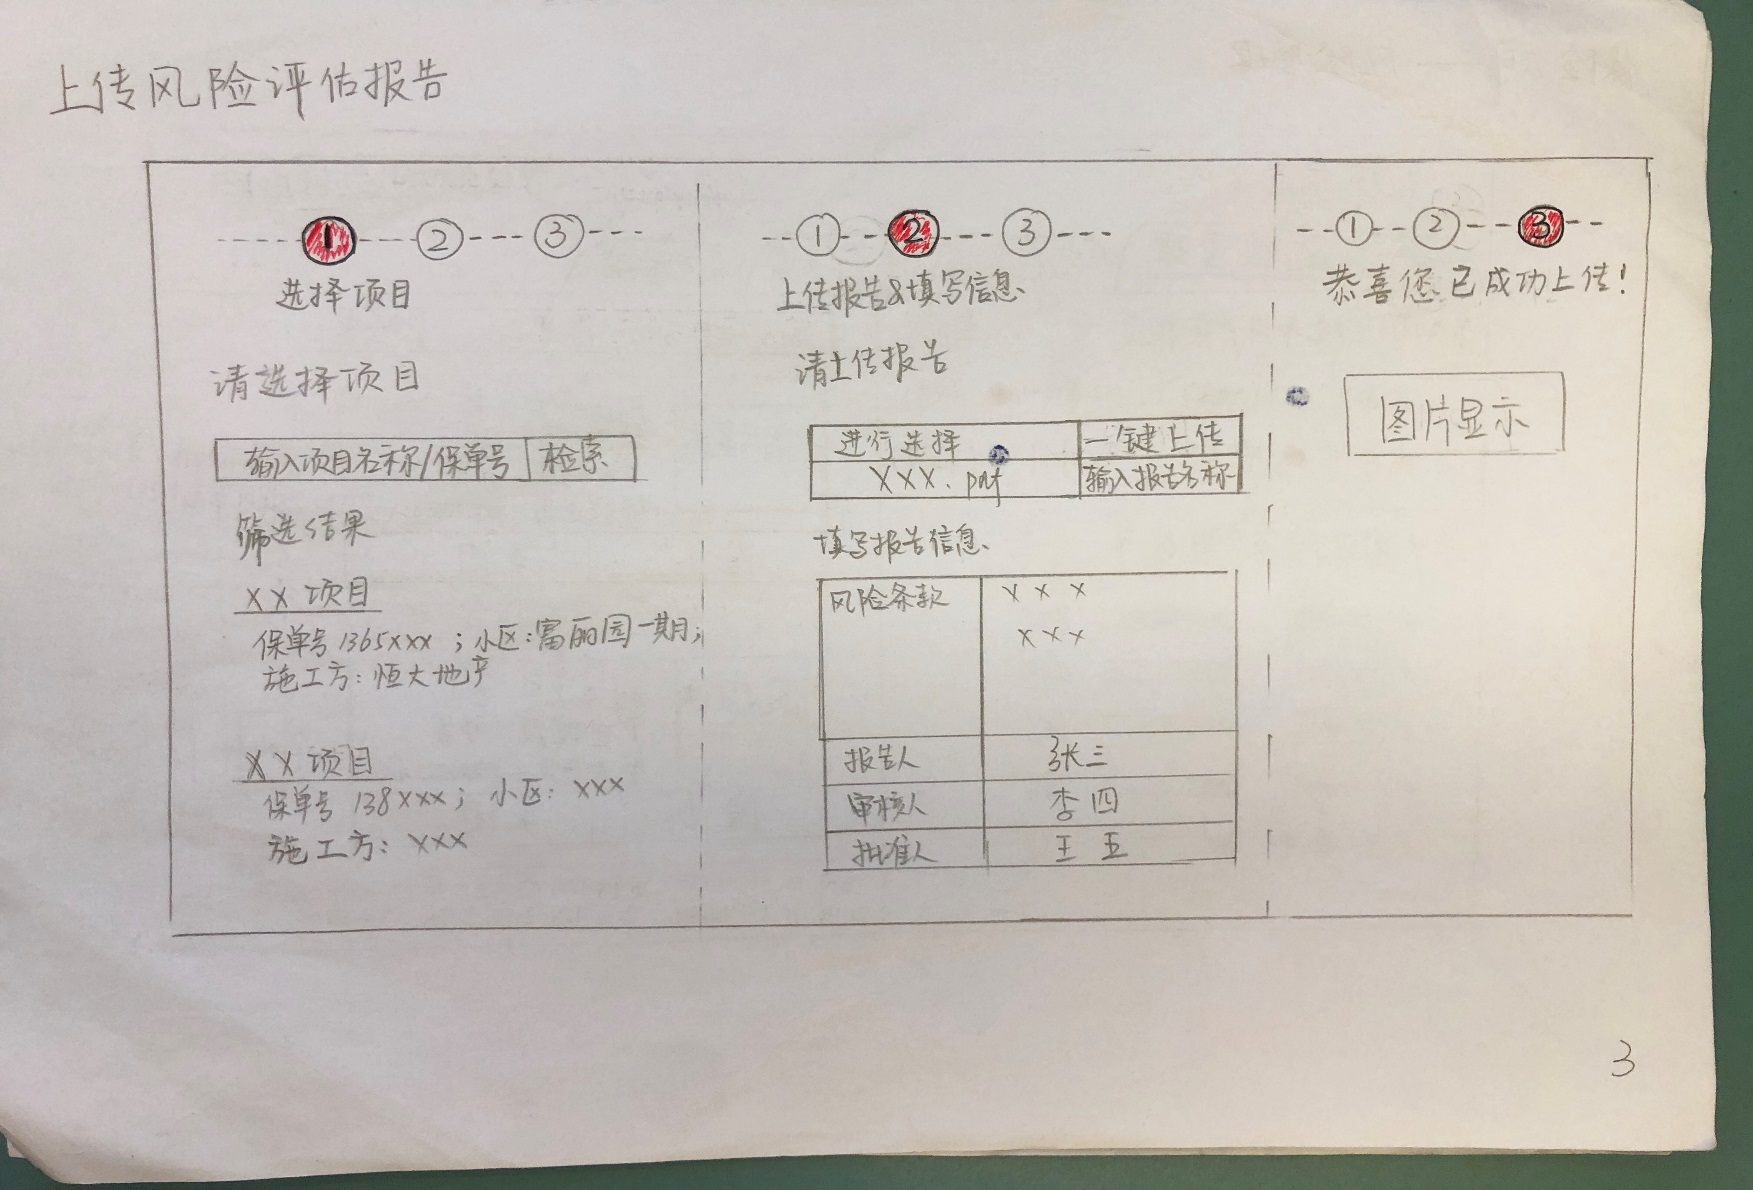 上传风险评估报告
① ② ③
选择项目
请选择项目
输入项目名称/保单号 检索
筛选结果
XX 项目
保单号 1365xxx ; 小区:富丽园一期;
施工方: 恒大地产
XX 项目
保单号 138XXX ; 小区: XXX
施工方: XXX
① ② ③
上传报告&填写信息
请上传报告
进行选择 一键上传
XXX. pdf 输入报告名称
填写报告信息
风险条款 X X X
X X X
报告人 张三
审核人 李四
批准人 王五
① ② ③
恭喜您已成功上传!
图片显示
3